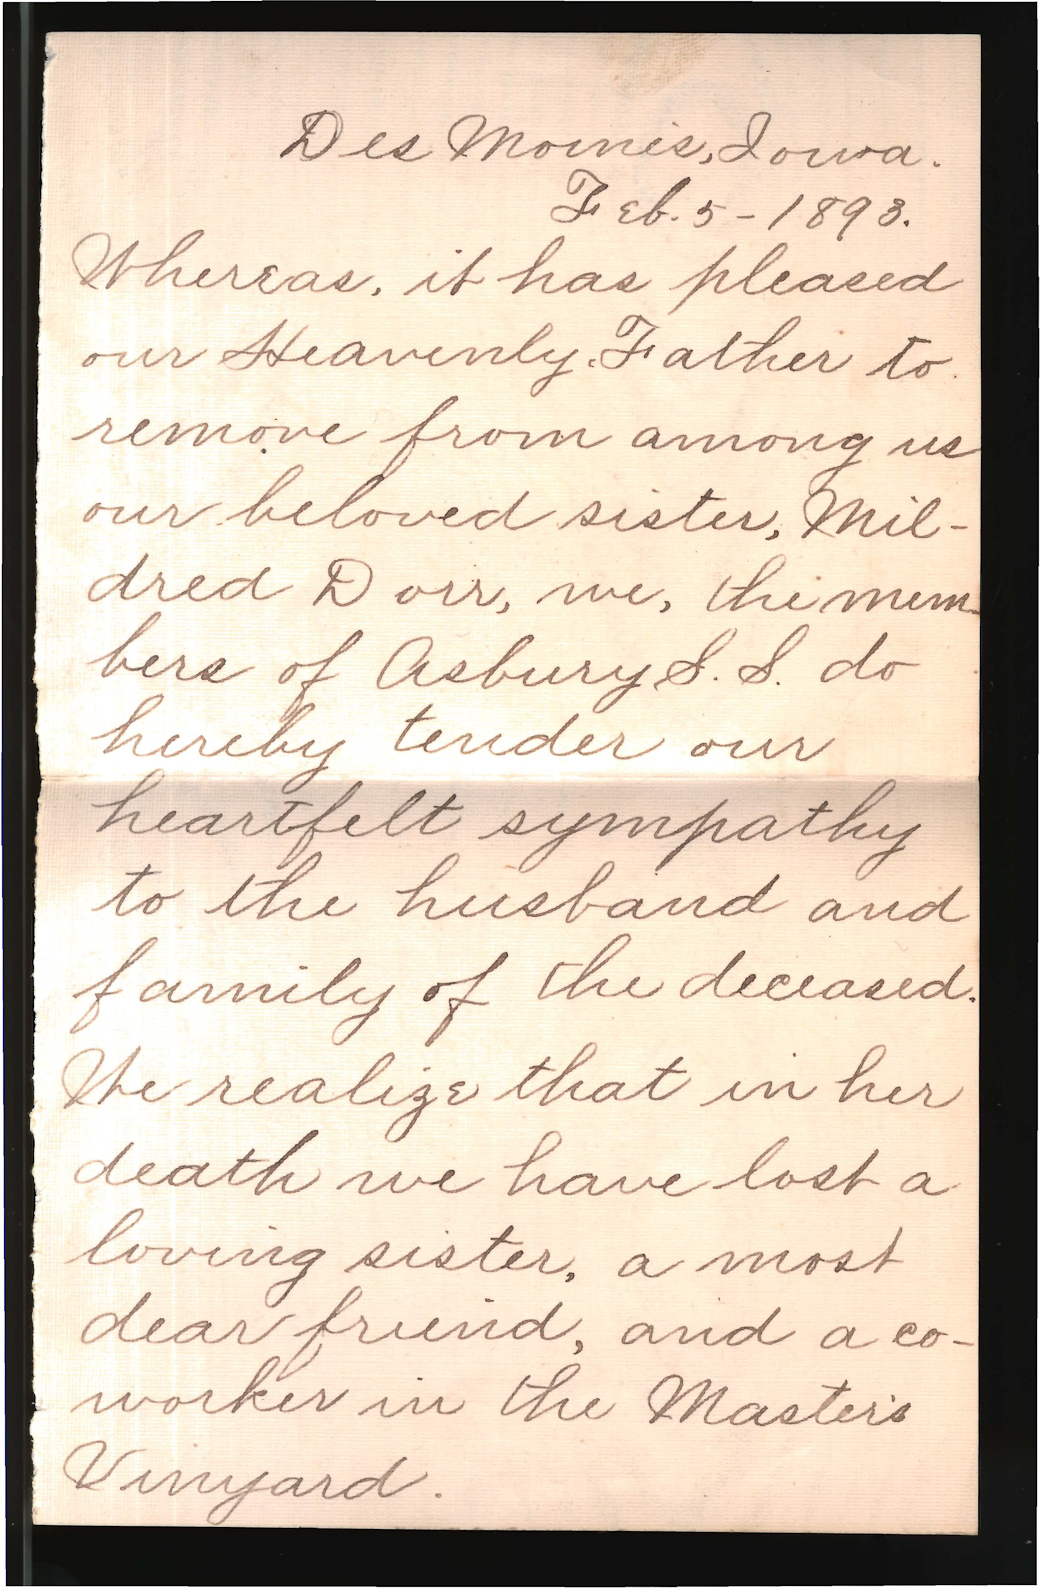 Des Moines, Iowa.
Feb. 5 - 1893.
Whereas, it has pleased
our Heavenly Father to
remove from among us
our beloved sister, Mil-
dred Dorr, we, the mem-
bers of Asbury S. S. do
hereby tender our
heartfelt sympathy
to the husband and
family of the deceased.
We realize that in her
death we have lost a
loving sister, a most
dear friend, and a co-
worker in the Master's
Vinyard.